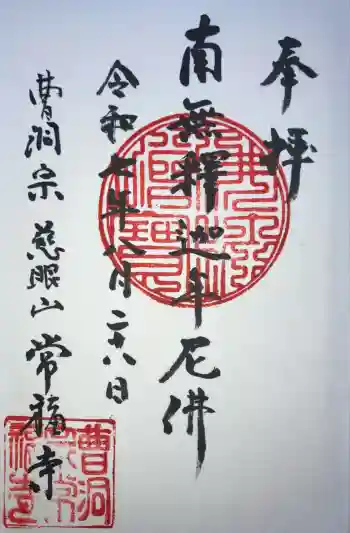 奉拝
南無釋迦牟尼佛
令和七年八月二十八日
曹洞宗 慈眼山 常福寺